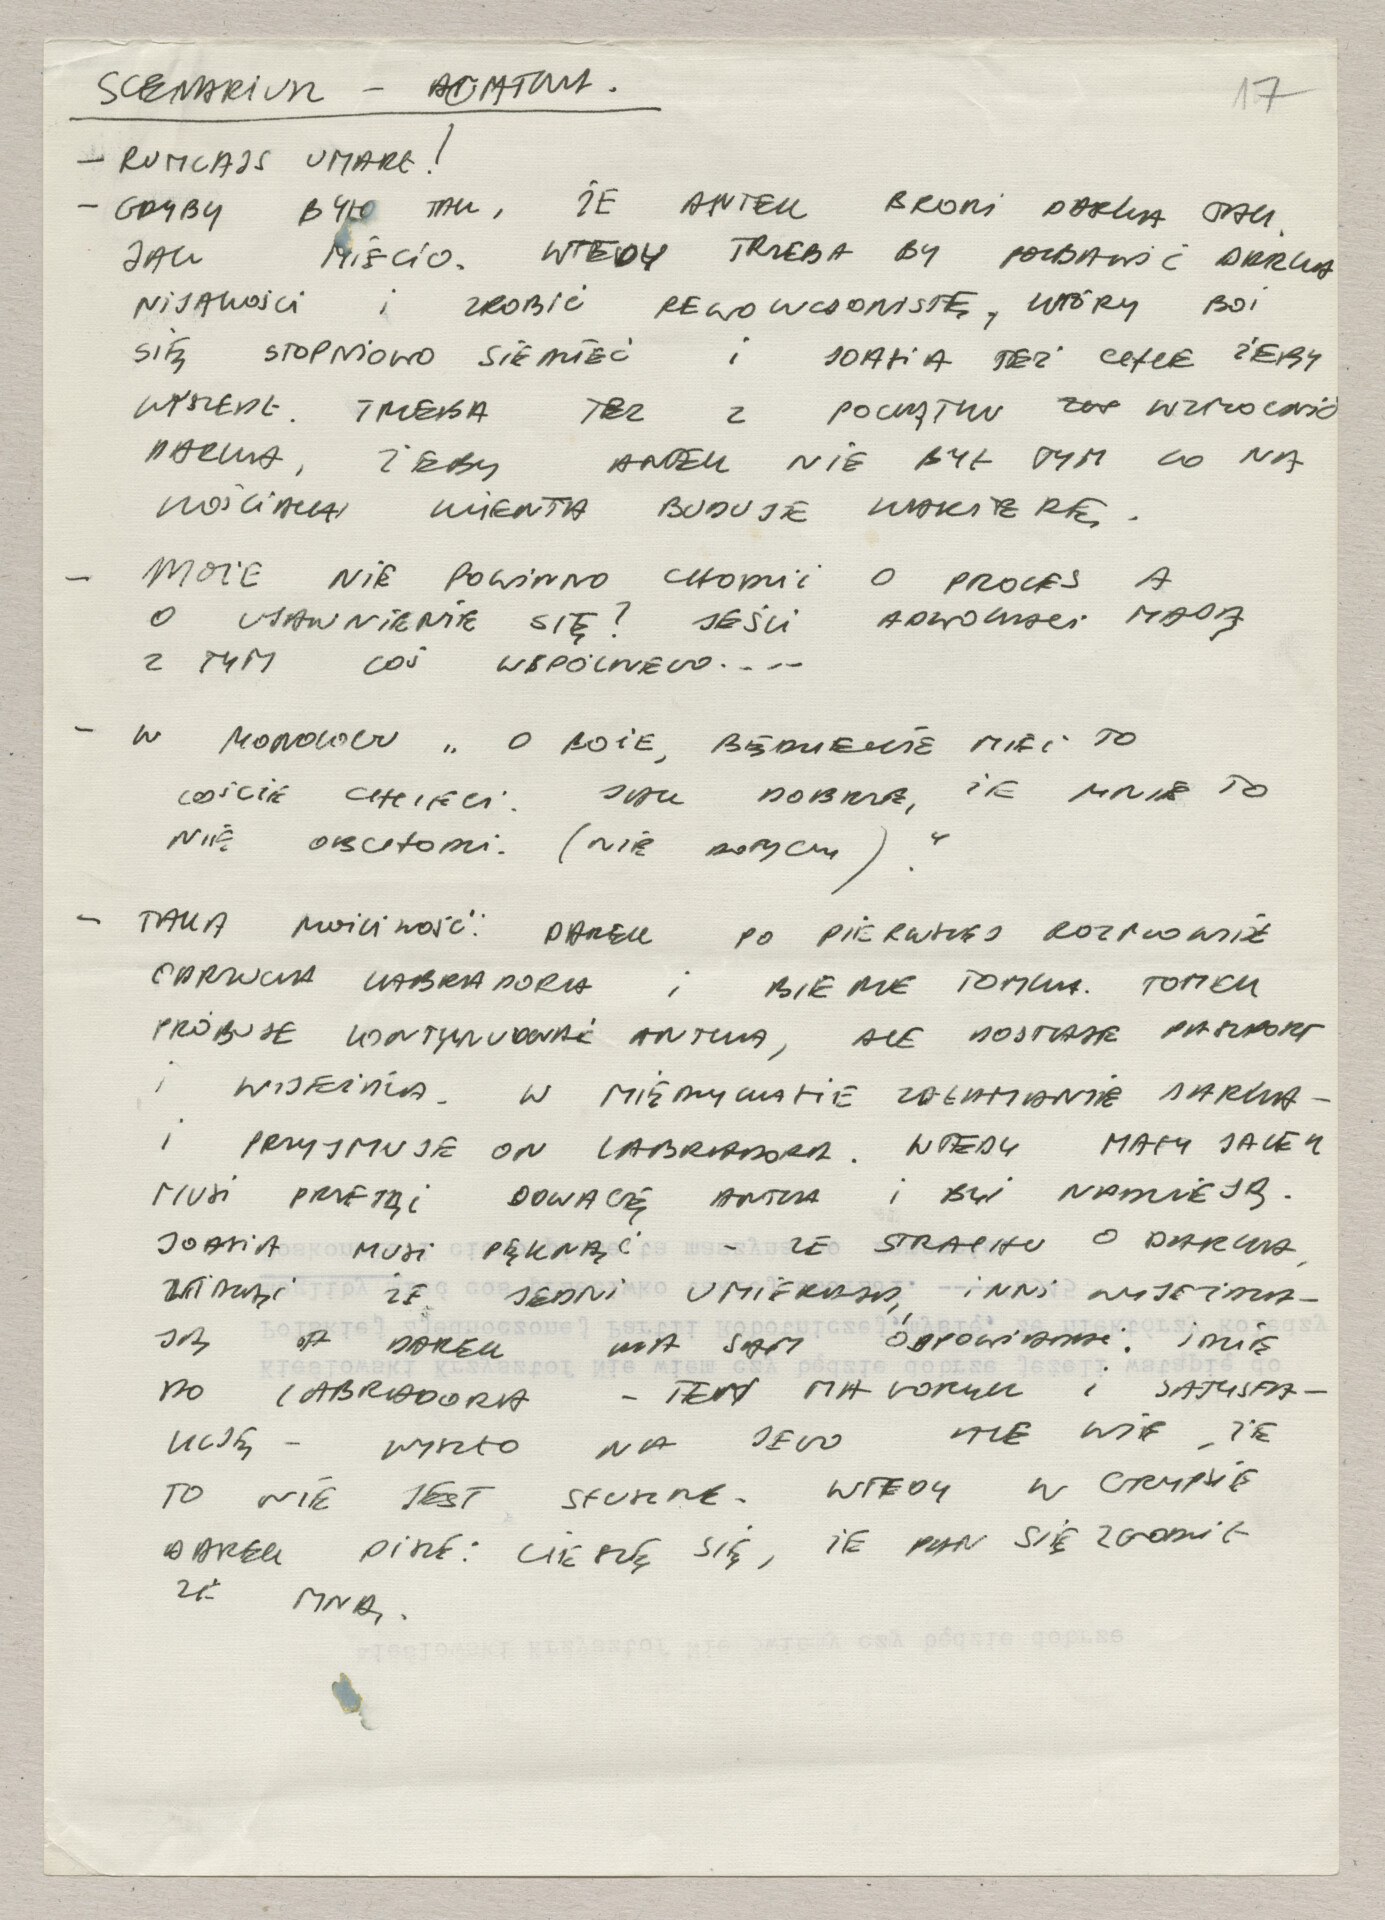 SCENARIUSZ –
17
– RUMCAJS UMARŁ!
– GDYBY BYŁO TAK, ŻE ANTEK BRONI DARKA TAK
JAK MIŚCIO. WTEDY TRZEBA BY POZBAWIĆ DARKA
NIJAKOŚCI I ZROBIĆ REWOLUCJONISTĘ, KTÓRY BOI
SIĘ STOPNIOWO SIEDZIEĆ I JOASIA TEŻ CHCE ŻEBY
WYSZEDŁ. TRZEBA TEŻ Z POCZĄTKU WZMOCNIĆ
DARKA, ŻEBY ANTEK NIE BYŁ TYM CO NA
KOŚCIACH KLIENTA BUDUJE KARIERĘ.
– MOŻE NIE POWINNO CHODZIĆ O PROCES A
O UJAWNIENIE SIĘ? JEŚLI ADWOKACI MAJĄ
Z TYM COŚ WSPÓLNEGO....
– W MONOLOGU „O BOŻE, BĘDZIECIE MIEĆ TO
COŚCIE CHCIELI. JAK DOBRZE, ŻE MNIE TO
NIE OBCHODZI. (NIE DOTYCZY)."
– TAKA MOŻLIWOŚĆ: DAREK PO PIERWSZEJ ROZMOWIE
LABRADORA I BIERZE TOMKA. TOMEK
PRÓBUJE KONTYNUOWAĆ ANTKA, ALE DOSTAJE PASZPORT
I WYJEŻDŻA. W MIĘDZYCZASIE ZAŁAMANIE DARKA –
I PRZYJMUJE ON LABRADORA. WTEDY MAŁY JACEK
MUSI PRZEJĄĆ ANTKA I BYĆ NADZIEJĄ.
JOASIA MUSI PĘKNĄĆ – ZE STRACHU O DARKA,
WIDZĄC ŻE JEDNI UMIERAJĄ, INNI WYJEŻDŻA-
JĄ A DAREK MA SAM ODPOWIADAĆ. IDZIE
DO LABRADORA – TEN MA GORYCZ I SATYSFA-
KCJĘ – WYSZŁO NA JEGO ALE WIE, ŻE
TO NIE JEST SŁUSZNE. WTEDY W GRYPSIE
DAREK PISZE: CIESZĘ SIĘ, ŻE PAN SIĘ ZGODZIŁ
ZE MNĄ.